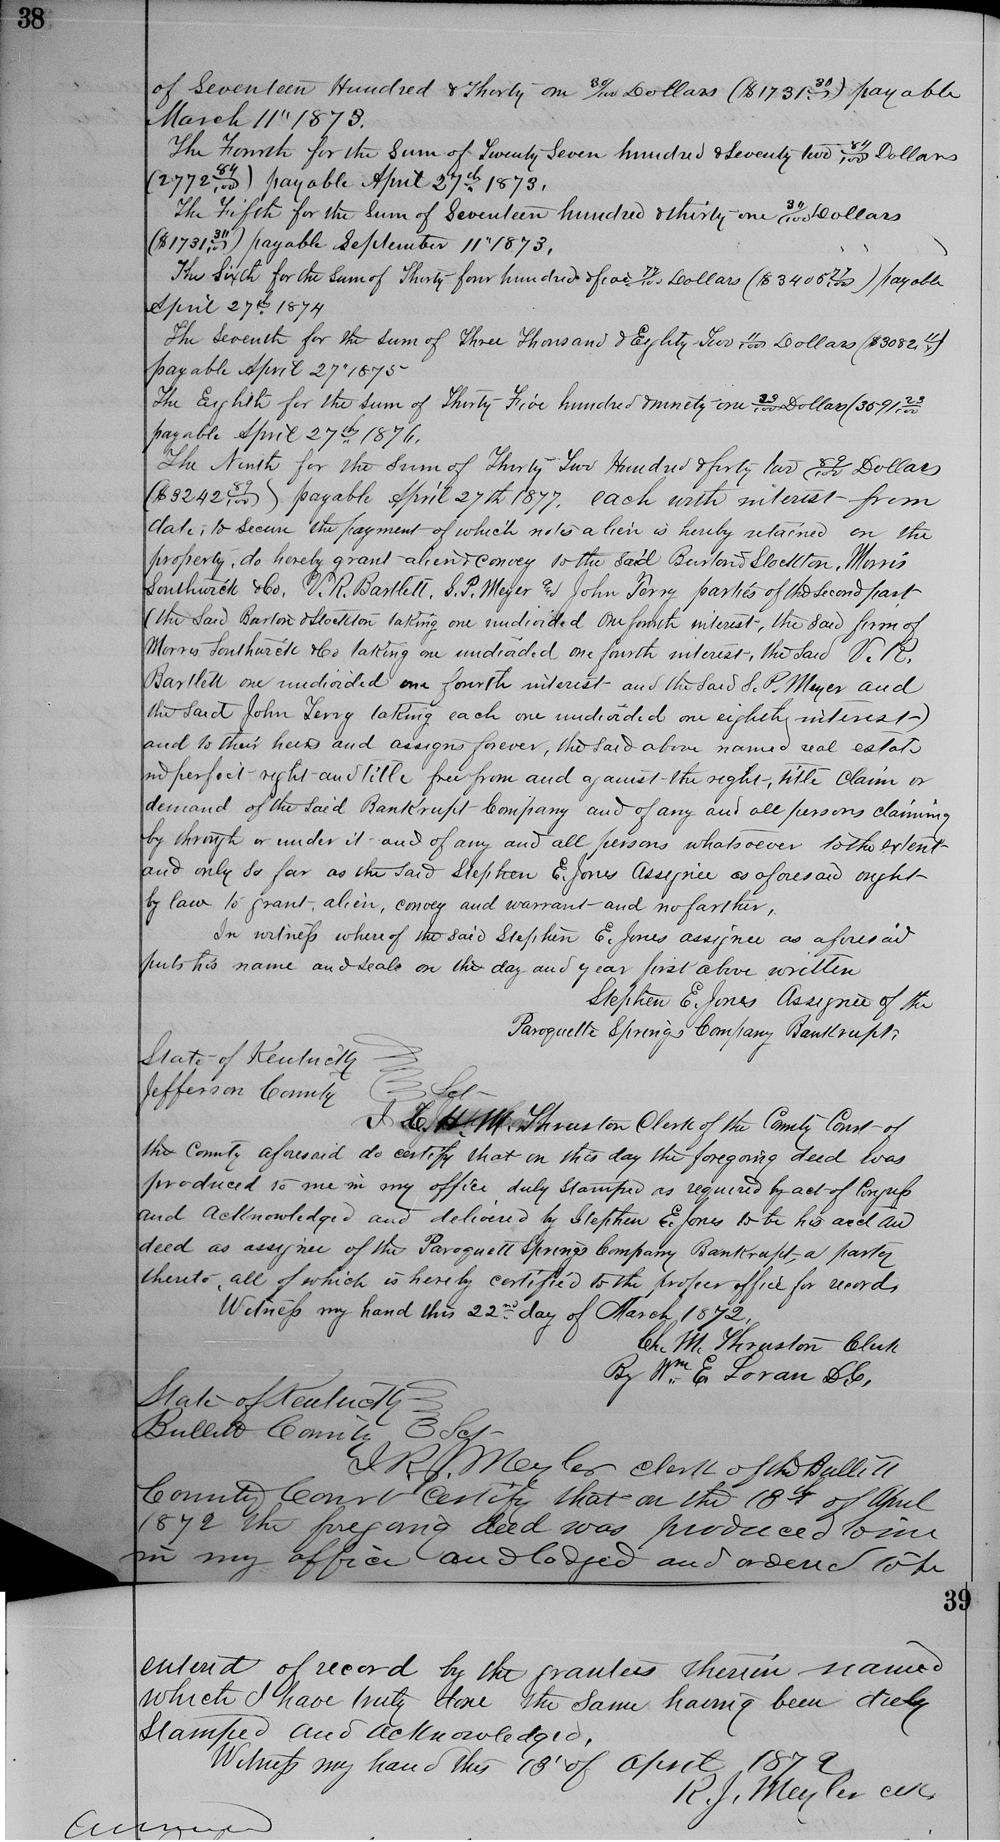 38
of Seventeen Hundred & Thirty one 30/100 Dollars ($1731 30/100) payable
March 11" 1873.
The Fourth for the Sum of Twenty Seven hundred & Seventy two 84/100 Dollars
(2772 84/100) payable April 27th 1873.
The Fifth for the Sum of Seventeen hundred & thirty-one 30/100 Dollars
($1731 30/100) payable September 11" 1873.
The Sixth for the Sum of Thirty four hundred & five 77/100 Dollars ($3405 77/100) payable
April 27th 1874
The Seventh for the Sum of Three Thousand & Eighty-Two 11/100 Dollars ($3082 11/)
payable April 27" 1875
The Eighth for the Sum of Thirty-Five hundred & ninety-one 23/100 Dollars (3591 23/100
payable April 27th 1876.
The Ninth for the Sum of Thirty Two Hundred & forty two 89/100 Dollars
($3242 89/100) payable April 27th 1877. each with interest from
date, to secure the payment of which notes a lien is hereby retained on the
property, do hereby grant alien & convey to the said Burton & Stockton, Morris
Southwick & Co. V. R. Bartlett, S. P. Meyer and John Terry parties of the second part
(the said Barton & Stockton taking one undivided One fourth interest, the said firm of
Morris Southwick & Co taking one undivided one fourth interest, the said V. R.
Bartlett one undivided one fourth interest and the said S. P. Meyer and
the said John Terry taking each one undivided one eighth interest)
and to their heirs and assigns forever, the said above named real estate
in perfect right and title free from and against the right, title claim or
demand of the said Bankrupt Company and of any and all persons claiming
by through or under it and of any and all persons whatsoever to the extent
and only so far as the said Stephen E. Jones Assignee as aforesaid ought
by law to grant, alien, convey and warrant and no farther,
In witness whereof the said Stephen E. Jones assignee as aforesaid
puts his name and seals on the day and year first above written
Stephen E. Jones Assignee of the
Paroquette Springs Company Bankrupt.
State of Kentucky
Jefferson County Sct
I C. H. M. Thruston Clerk of the County Court of
the County aforesaid do certify that on this day the foregoing deed was
produced to me in my office duly stamped as required by act of Congress
and Acknowledged and delivered by Stephen E. Jones to be his act and
deed as assignee of the Paroquett Springs Company Bankrupt, a party
thereto, all of which is hereby certified to the proper office for record
Witness my hand this 22nd day of March 1872.
Ch. M. Thruston Clerk
By Wm E. Loran D.C.
State of Kentucky
Bullitt County Sct
I R. J. Meyler clerk of the Bullitt
County Court certify that on the 18th of April
1872 the foregoing deed was produced to me
in my office and lodged and ordered to be
39
enterd of record by the grantees therein named
which I have truly done the same having been duly
stamped and acknowledged.
Witness my hand this 18" of April 1872
R. J. Meyler clk.